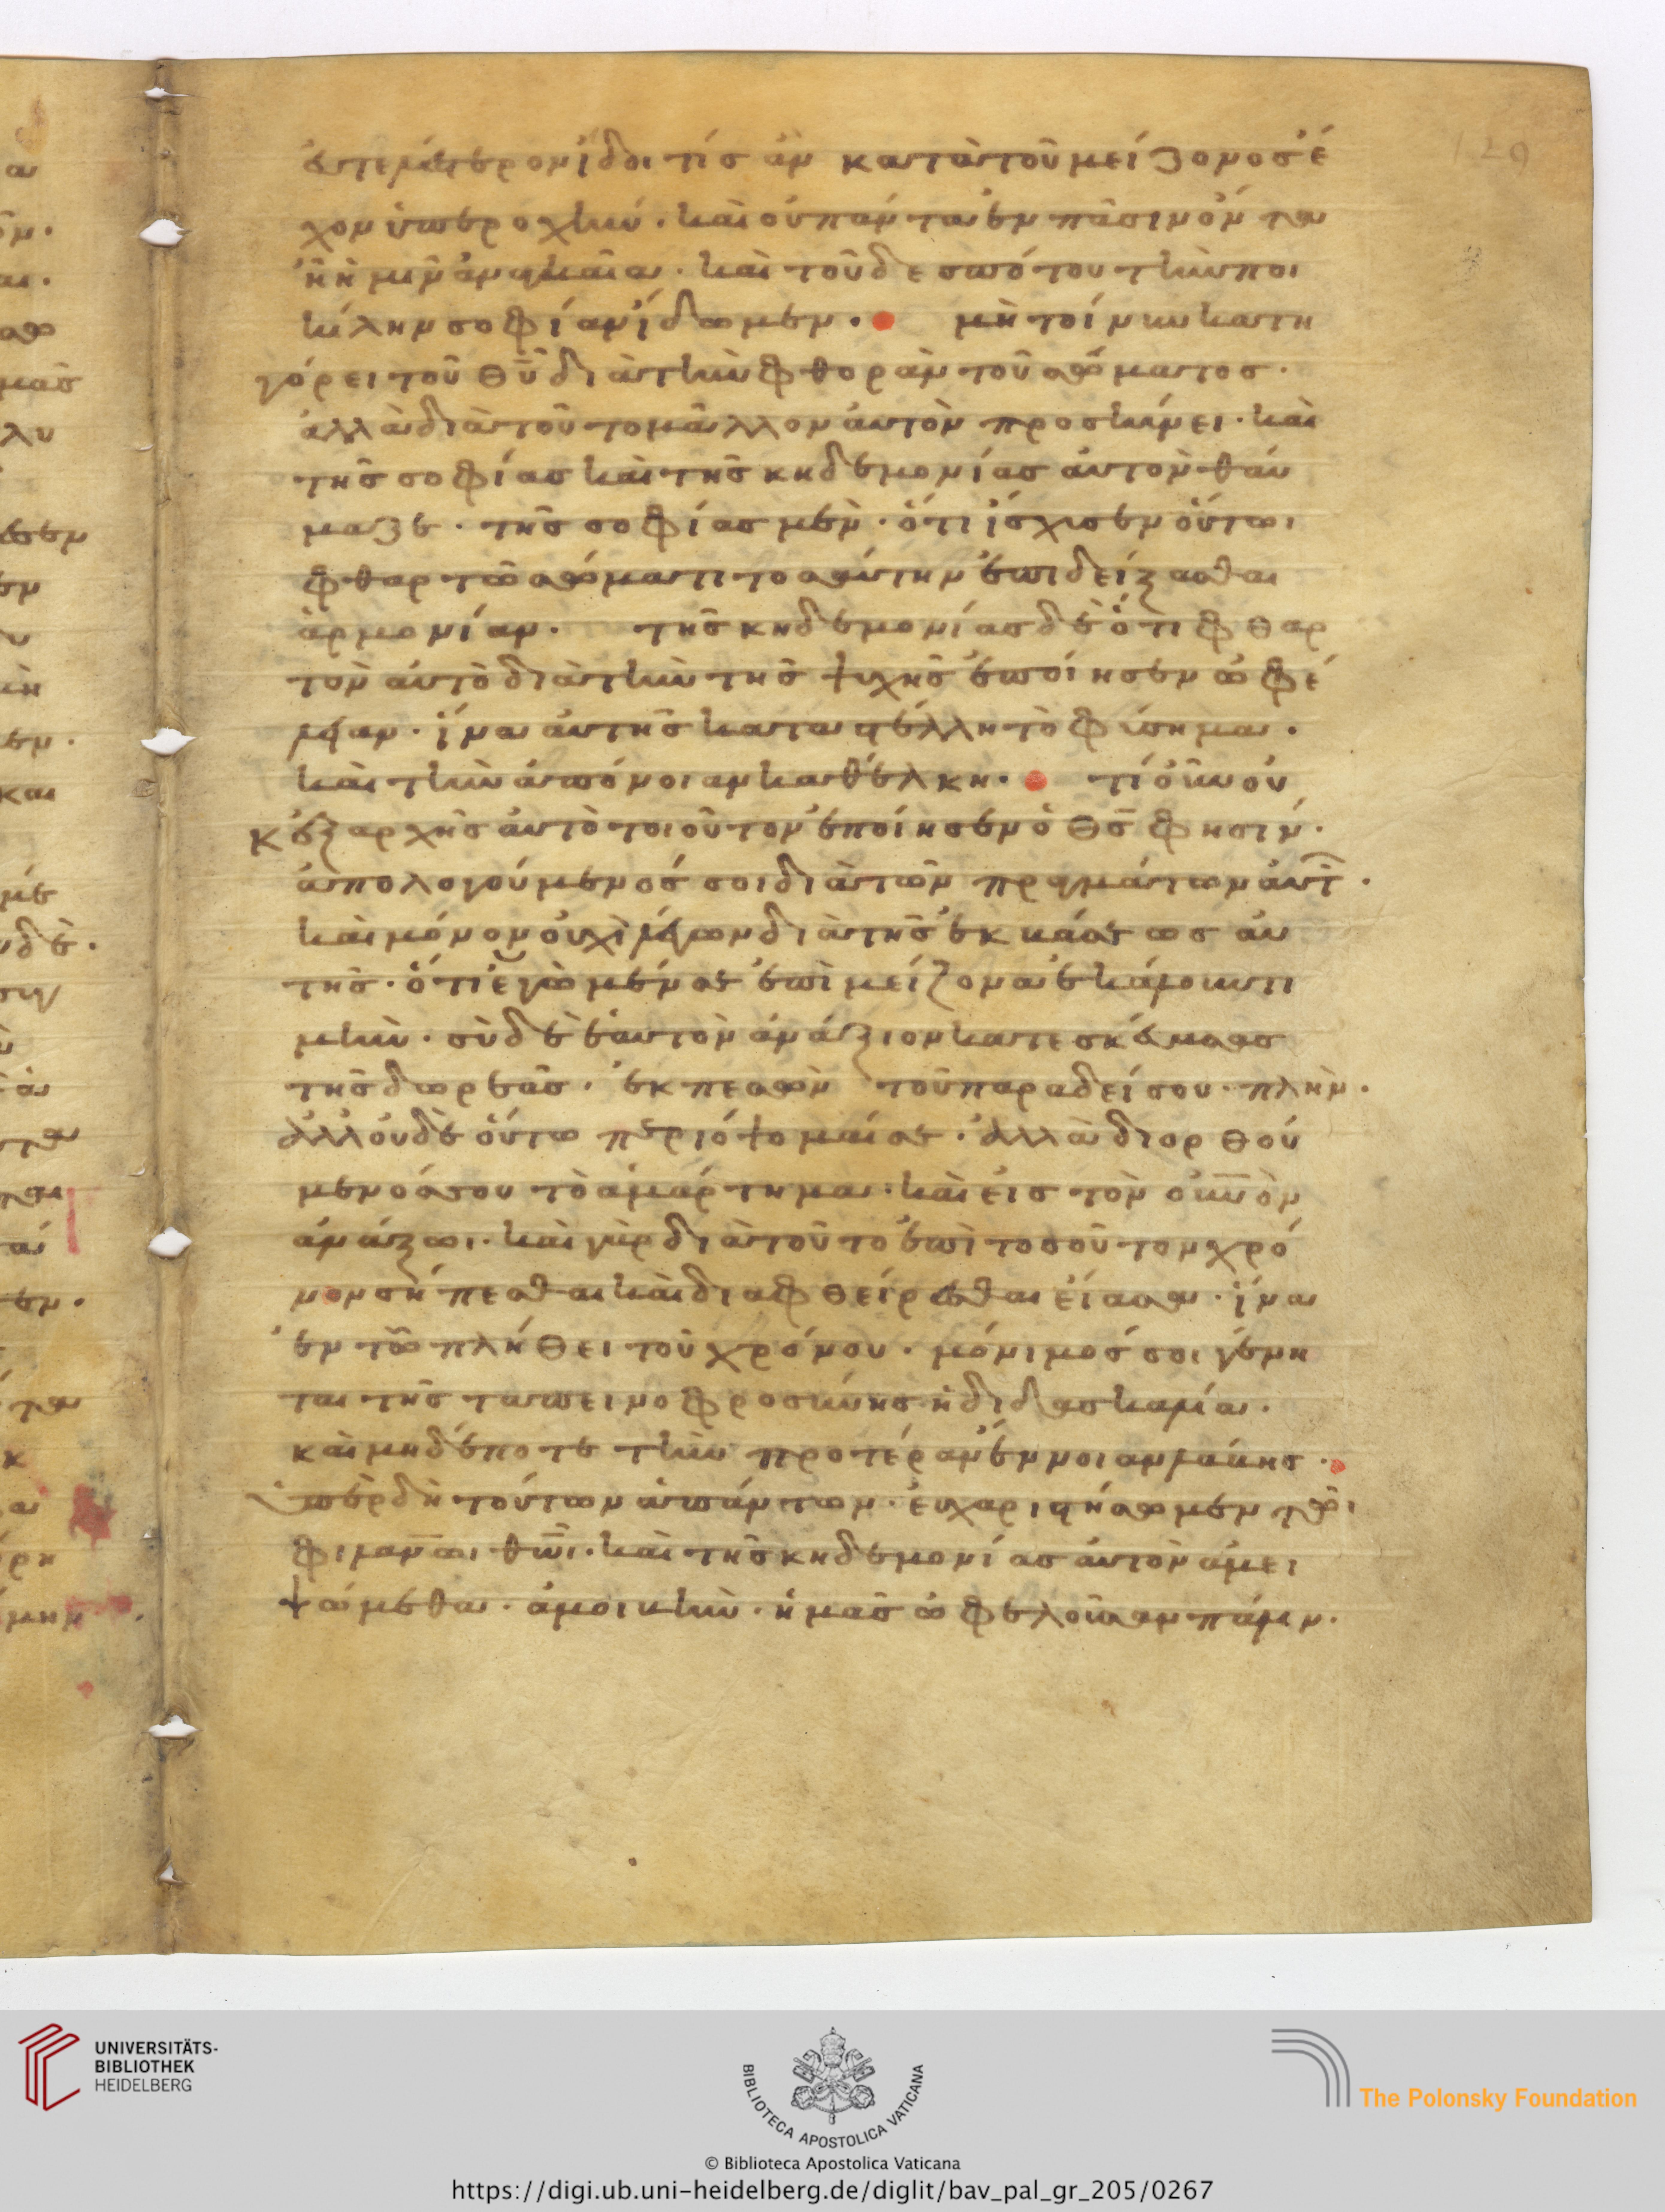 εὐτελέστερον ἴδοι τίς ἂν κατὰ τοῦ μείζονος ἔ
χον ὑπεροχήν. καὶ οὐ πάντα ἐν πᾶσιν ὄντα
ἢ ἡμῖν ἀναγκαῖα. καὶ τοῦ δεσπότου τὴν ποι
κίλην σοφίαν ἴδωμεν. μὴ τοίνυν κατη
γόρει τοῦ θ̅υ̅ διὰ τὴν φθορὰν τοῦ σώματος.
ἀλλὰ διὰ τοῦτο μᾶλλον αὐτὸν προσκύνει. καὶ
τῆς σοφίας καὶ τῆς κηδεμονίας αὐτὸν θαύ
μαζε. τῆς σοφίας μὲν. ὅτι ἴσχυσεν οὕτωι
φθαρτῶ σώματι τοσαύτην ἐπιδείξασθαι
ἁρμονίαν. τῆς κηδεμονίας δὲ ὅτι φθαρ
τὸν αὐτὸ διὰ τὴν τῆς ψυχῆς ἐποίησεν ὠφέ
λειαν. ἵνα αὐτῆς καταστέλλη τὸ φύσημα.
καὶ τὴν ἀπόνοιαν καθέλκη. τί οὖν οὐ
κ ἐξ ἀρχῆς αὐτὸ τοιοῦτον ἐποίησεν ὁ θ̅σ̅ φησίν.
ἀπολογούμενός σοι διὰ τῶν πραγμάτων αὐτ.
καὶ μόνον οὐχὶ λέγων διὰ τῆς ἐκκαύσεως αὐ
τῆς. ὅτι ἐγὼ μέν σε ἐπὶ μείζονα ἐκάλουν τι
μὴν. σὺ δὲ ἑαυτὸν ἀνάξιον κατεσκεύασας
τῆς δωρεᾶς. ἐκπεσὼν τοῦ παραδείσου. πλὴν.
ἀλλ οὐδὲ οὕτω περιόψομαί σε. ἀλλὰ διορθού
μενός σου τὸ ἁμάρτημα. καὶ εἰς τὸν ο̅υ̅ν̅ὸν
ἀνάξωι. καὶ γὰρ διὰ τοῦτο ἐπὶ τοσοῦτον χρό
νον σήπεσθαι καὶ διαφθείρεσθαι εἴασα. ἵνα
ἐν τῶ πλήθει τοῦ χρόνου. μόνιμός σοι γένη
ται τῆς ταπεινοφροσύνης ἡ διδασκαλία.
καὶ μηδέποτε τὴν προτέραν ἔννοιαν λάβης.
ὑπὲρ δὴ τούτων ἁπάντων. εὐχαριστήσωμεν τῶι
φιλαν̅ωι θ̅ῶι. καὶ τῆς κηδεμονίας αὐτὸν ἀμει
ψώμεθα. ἀμοιβὴν. ἡμᾶς ὠφελοῦσαν πάλιν.
UNIVERSITÄTS-
BIBLIOTHEK
HEIDELBERG
BIBLIOTECA APOSTOLICA VATICANA
The Polonsky Foundation
© Biblioteca Apostolica Vaticana
https://digi.ub.uni-heidelberg.de/diglit/bav_pal_gr_205/0267